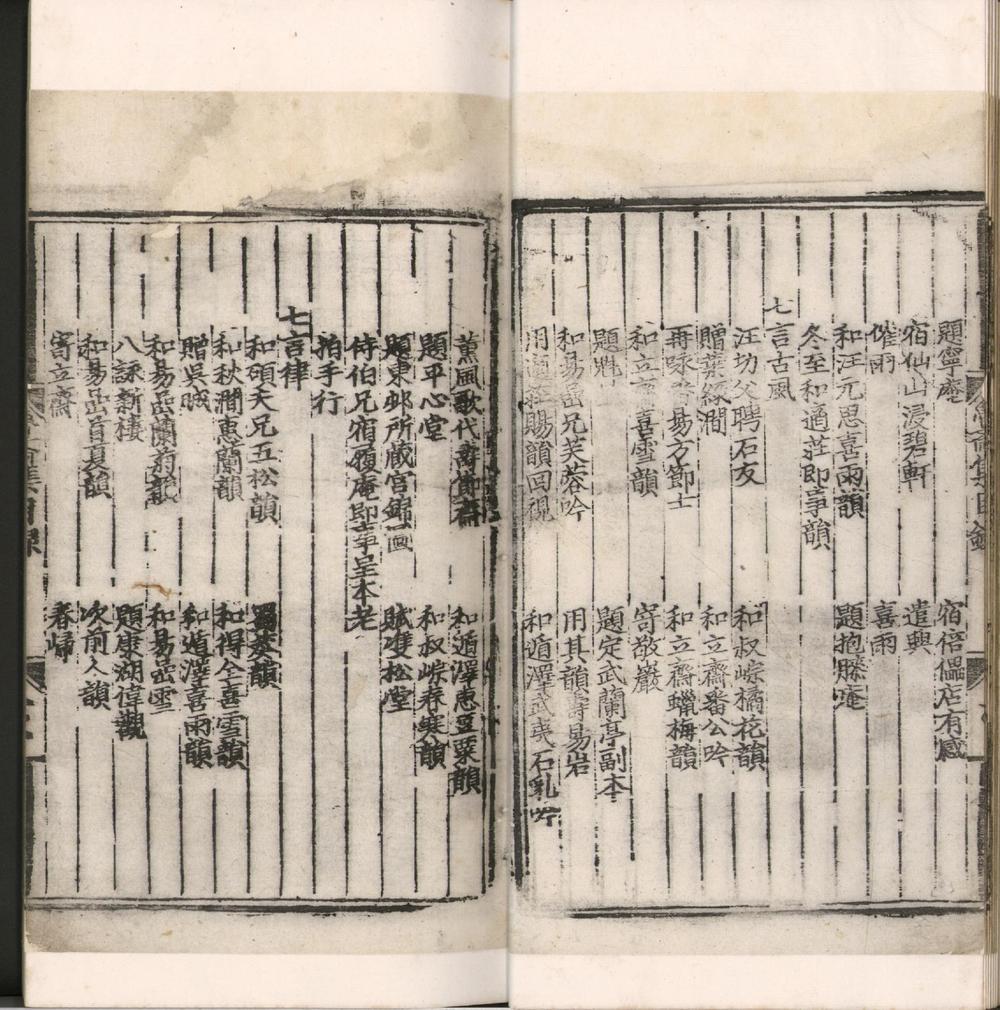 題寧庵
宿倍儡店有感
宿仙山浸碧軒
遣興
催雨
喜雨
和汪元思喜雨韻
題抱膝菴
冬至和適莊即事韻
七言古風
汪功父聘石友
和叔崇橘花韻
贈葉緑澗
和立齋番公吟
再咏 易方節士
和立齋蠟梅韻
和立齋喜雪韻
寄敬巖
題
題定武蘭亭副本
和易嵒兄芙蓉吟
用其韻壽易岩
用適莊賜韻回視
和遁澤武夷石乳吟
薰風歌代壽節齋
和遁澤惠豆粟韻
題平心堂
和叔崇春寒韻
題東邨所藏宮錦画
賦雙松堂
侍伯兄宿履庵即事呈本老
拍手行
七言律
和碩夫兄五松韻
蜀葵韻
和秋澗惠蘭韻
和得全喜雪韻
贈吳
和遁澤喜雨韻
和易嵒蘭 韻
和易嵒雪
八詠新樓
題康湖偉觀
和易嵒首夏韻
次前人韻
寄立齋
春歸
魯齋集目錄